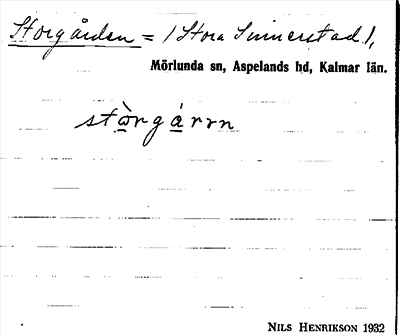 Storgården = / Stora Sinnerstad /,
Mörlunda sn, Aspelands hd, Kalmar län.
stòrgárrn
NILS HENRIKSON 1932